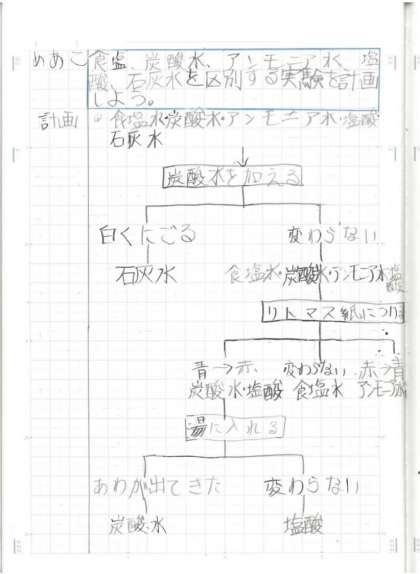 めあて 食塩、炭酸水、アンモニア水、塩
酸、石灰水を区別する実験を計画
しよう。
計画 ◦食塩水・炭酸水・アンモニア水・塩酸
石灰水
炭酸水を加える
白くにごる 変わらない
石灰水 食塩水・炭酸水・アンモニア水・塩酸
リトマス紙につける
青→赤 変わらない 赤→青
炭酸水・塩酸 食塩水 アンモニア水
湯に入れる
あわが出てきた 変わらない
炭酸水 塩酸